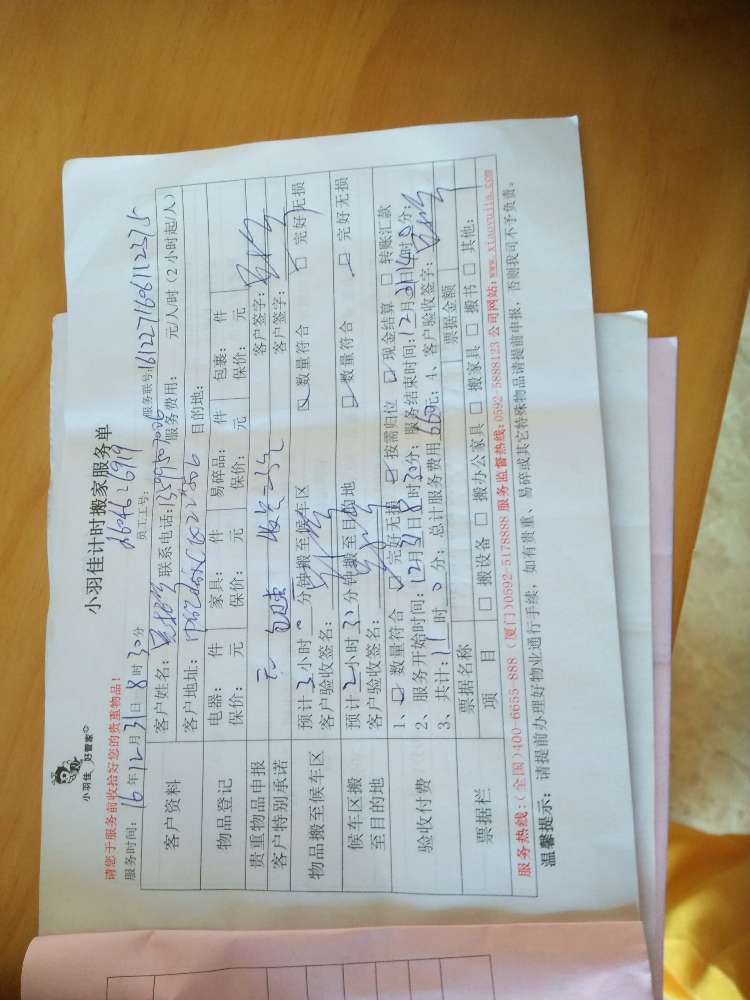 小羽佳 好管家
小羽佳计时搬家服务单
请您于服务前收拾好您的贵重物品!
服务时间: 16年12月31日8时30分 员工工号: 服务联号:
客户资料 客户姓名: 联系电话: 服务费用: 元/人/时(2小时起/人)
客户地址: 目的地:
物品登记 电器: 件 家具: 件 易碎品: 件 包裹: 件
保价: 元 保价: 元 保价: 元 保价: 元
贵重物品申报 无 客户签字:
客户特别承诺 客户签字:
物品搬至候车区 预计3小时0分钟搬至候车区 数量符合 完好无损
客户验收签名:
候车区搬至目的地 预计2小时30分钟搬至目的地 数量符合 完好无损
客户验收签名:
验收付费 1、数量符合 完好无损 按需归位 现金结算 转账汇款
2、服务开始时间: 12月31日8时30分; 服务结束时间: 12月31日14时0分
3、共计: 11时0分; 总计服务费用660元; 4、客户验收签字:
票据栏 票据名称 票据金额
项目 搬设备 搬办公家具 搬家具 搬书 其他:
服务热线:(全国)400-6655-888 (厦门)0592-5178888 服务监督热线:0592-5888123 公司网站:www.xiaoyujia.com
温馨提示: 请提前办理好物业通行手续, 如有贵重、易碎或其它特殊物品请提前申报, 否则我司不予负责。